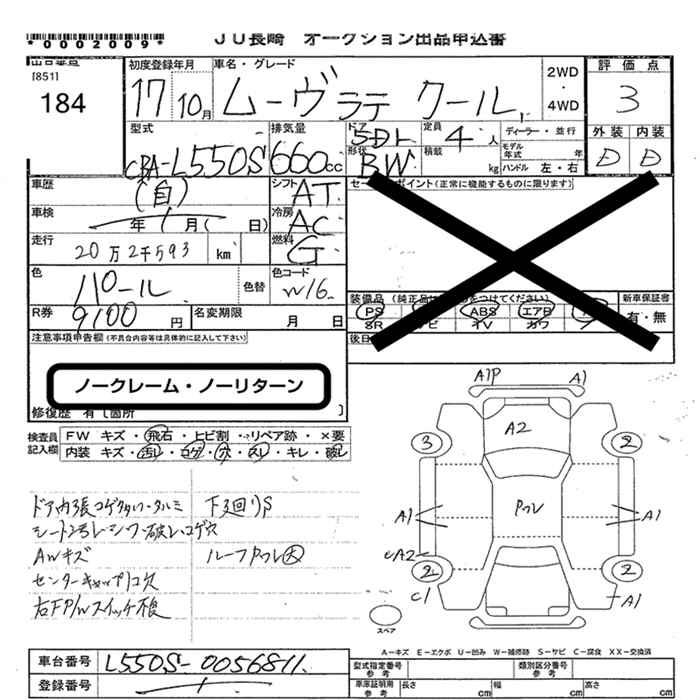 *0002009*
JU長崎 オークション出品申込書
[851]
184
初度登録年月
17 10月
車名・グレード
ムーヴ ラテ クール
2WD
・
4WD
評価点
3
外装 内装
D D
型式
CBA-L550S
排気量
660cc
ドア
5D
形状
BW
定員
4人
積載
kg
ディーラー・並行
モデル年式 年
ハンドル 左・右
車歴
(自)
シフト
AT
セールスポイント(正常に機能するものに限ります)
車検
年 月( 日)
冷房
AC
走行
20万2千593 km
燃料
G
色
パール
色替
色コード
W16
装備品
PS
ABS
エアB
SR
カワ
新車保証書
有・無
R券
9100円
名変期限
月 日
注意事項申告欄(不具合内容等は具体的に記入して下さい)
ノークレーム・ノーリターン
修復歴 有 [箇所 ]
検査員記入欄
FW キズ・飛石・ヒビ割・リペア跡・×要
内装 キズ・汚れ・コゲ・穴・スレ・キレ・破れ
ドア内張コゲ
下廻りS
AWキズ
ルーフアルミ大
センターキャップ1コ欠
右FP/Wスイッチ不良
A1P A1
A2
3 2
A1 A1
A2
2 2
C1 A1
スペア
A-キズ E-エクボ U-凹み W-補修跡 S-サビ C-腐食 XX-交換済
車台番号
L550S-0056811
登録番号
型式指定番号 参考
類別区分番号 参考
車庫証明用 参考
長さ cm
幅 cm
高さ cm